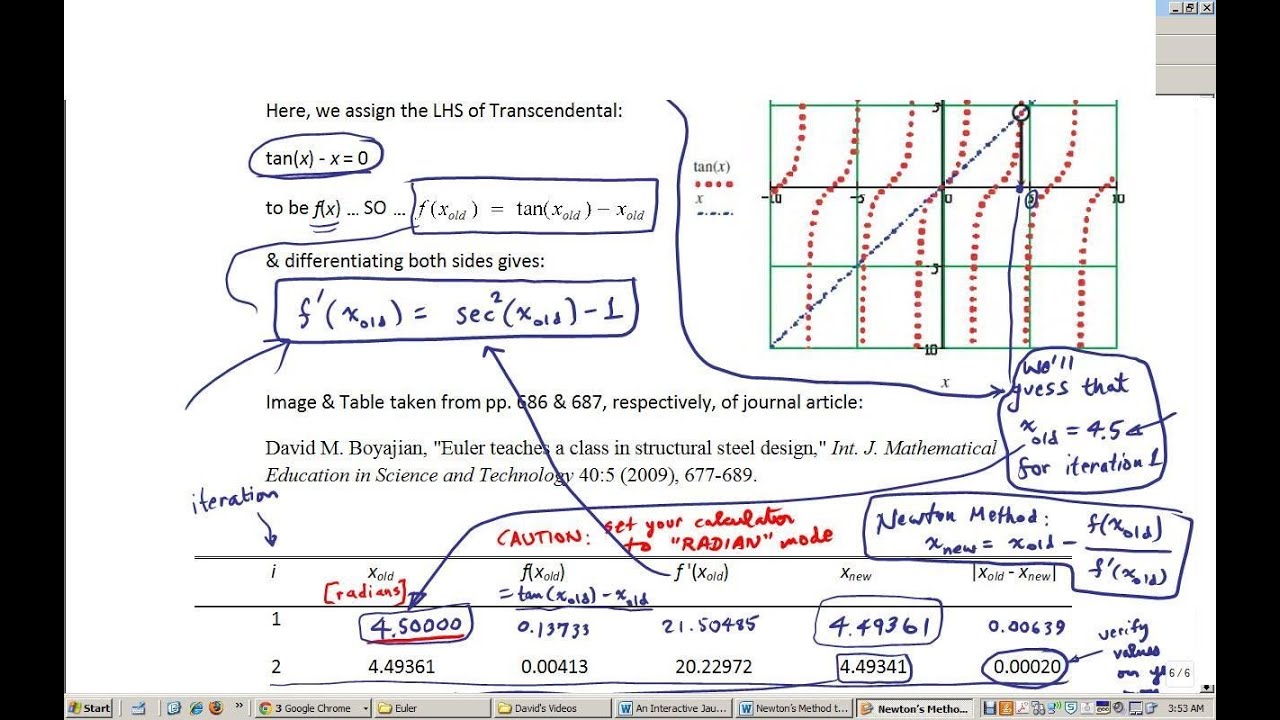 Here, we assign the LHS of Transcendental:
tan(x) - x = 0
to be f(x) ... SO ... f(x_old) = tan(x_old) − x_old
& differentiating both sides gives:
f'(x_old) = sec²(x_old) - 1
tan(x)
x
5
-10
-5
0
5
10
-5
-10
x
we'll
guess that
x_old = 4.5
for iteration 1
Image & Table taken from pp. 686 & 687, respectively, of journal article:
David M. Boyajian, "Euler teaches a class in structural steel design," Int. J. Mathematical
Education in Science and Technology 40:5 (2009), 677-689.
iteration
CAUTION: set your calculator
to "RADIAN" mode
Newton Method:
x_new = x_old - f(x_old) / f'(x_old)
i x_old f(x_old) f '(x_old) x_new |x_old - x_new|
[radians] = tan(x_old) - x_old
1 4.50000 0.13733 21.50485 4.49361 0.00639
2 4.49361 0.00413 20.22972 4.49341 0.00020
verify
values
on
6 / 6
Start » 3 Google Chrome Euler David's Videos An Interactive Jau... Newton's Method t... Newton's Metho... 3:53 AM